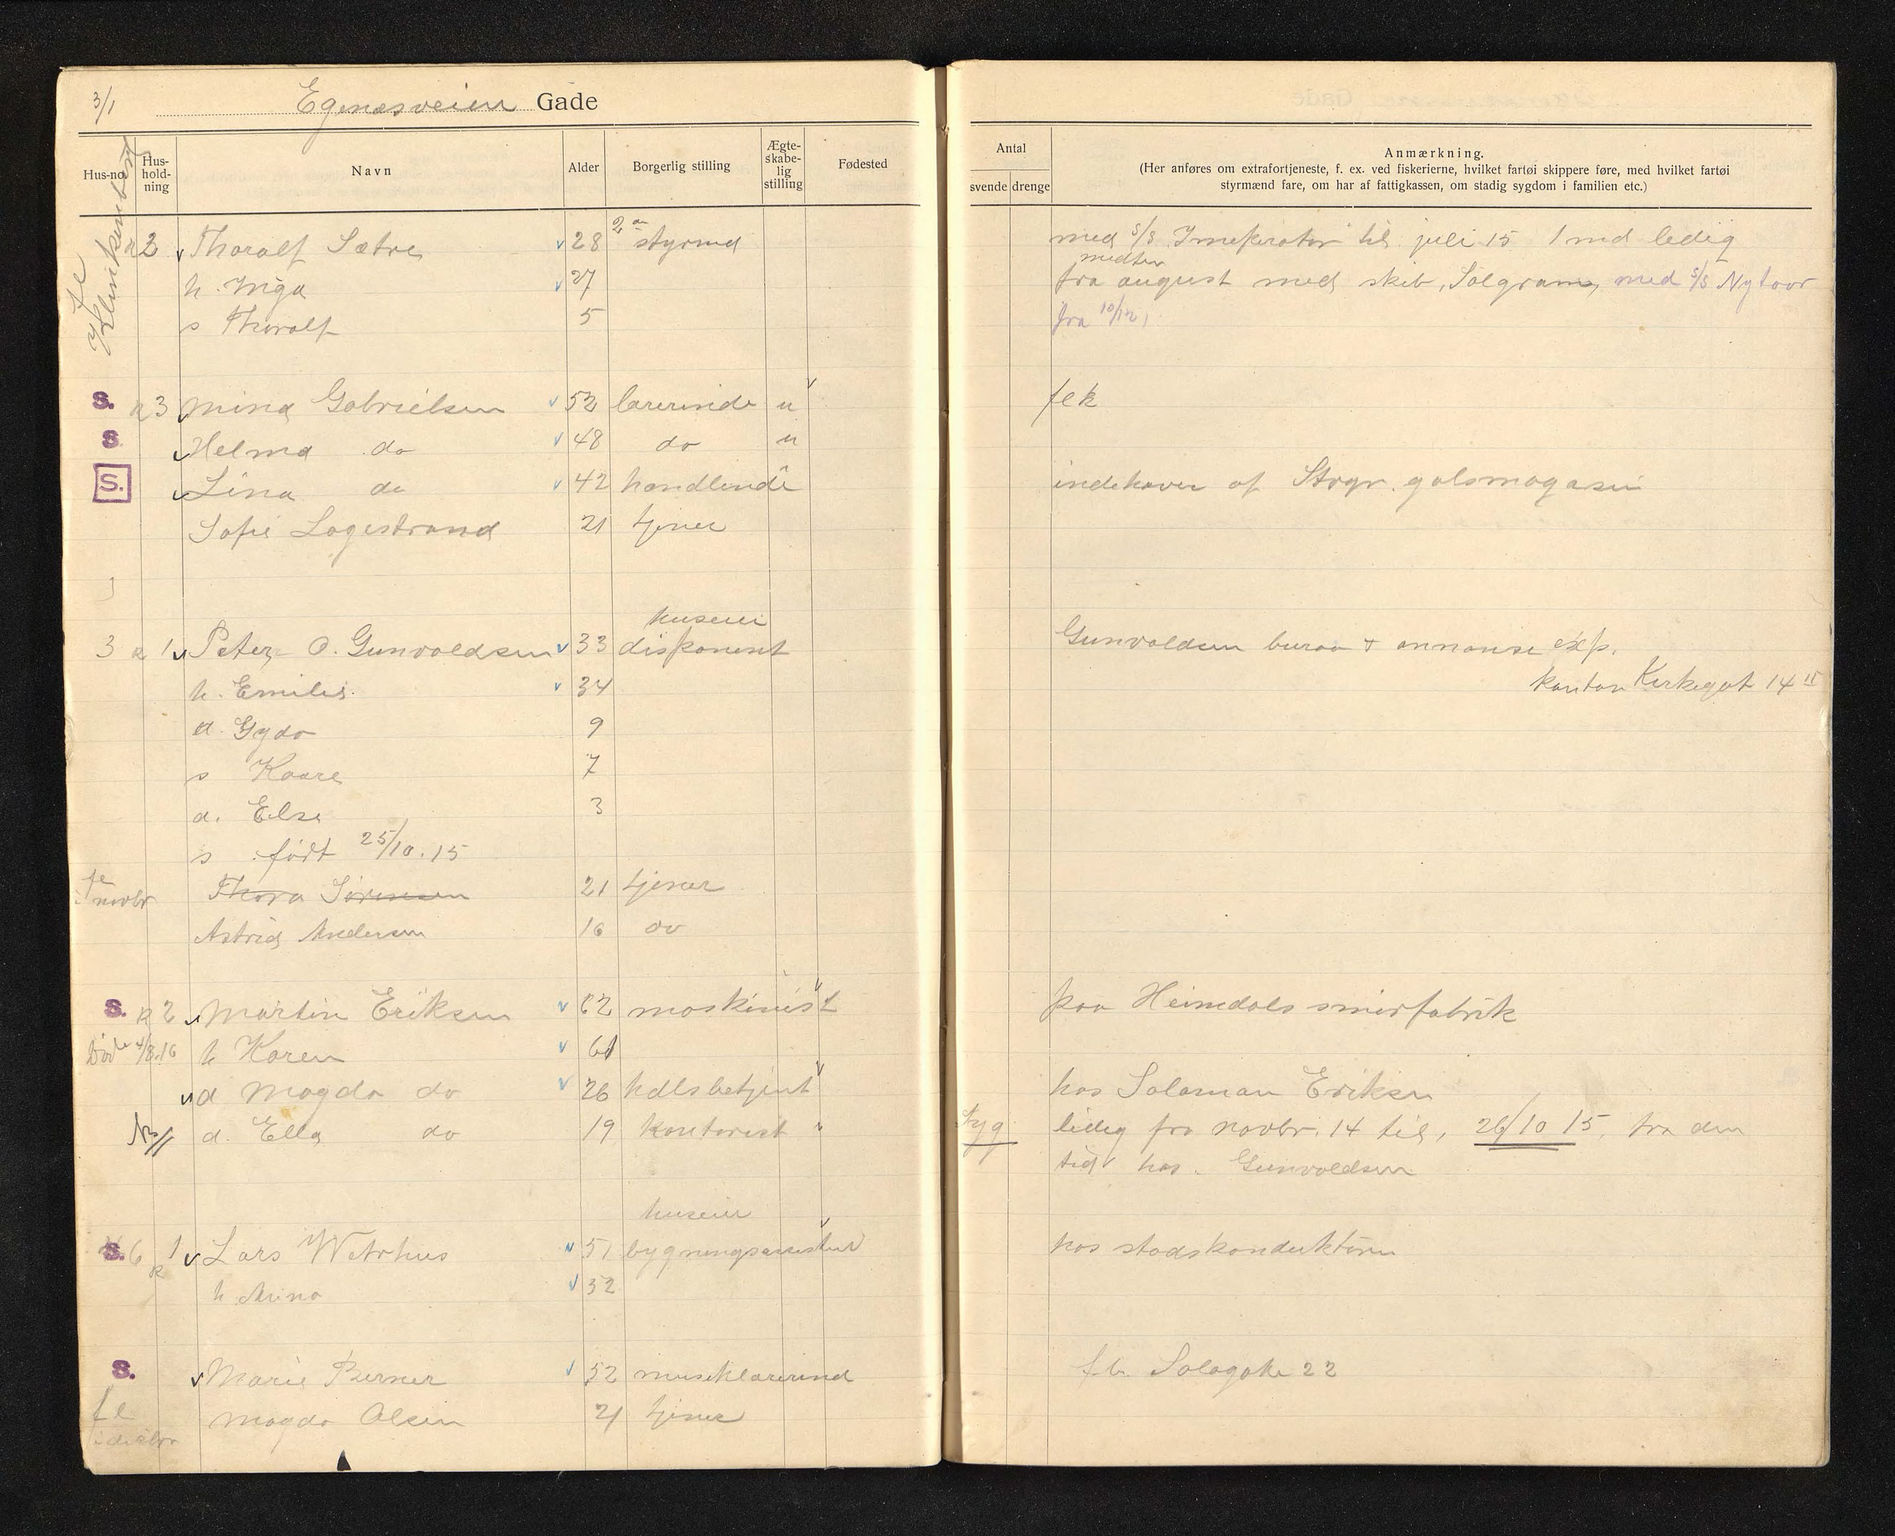 3/1 Egenæsveien Gade
Hus-no.
Hus-
hold-
ning
Navn
Alder
Borgerlig stilling
Ægte-
skabe-
lig
stilling
Fødested
Antal
svende drenge
Anmærkning.
(Her anføres om extrafortjeneste, f. ex. ved fiskerierne, hvilket fartøi skippere føre, med hvilket fartøi
styrmænd fare, om har af fattigkassen, om stadig sygdom i familien etc.)
2 Thoralf Sætre 28 2den styrmd med s/s Imperator til juli 15 1 md ledig
h. Inga 27 fra august med skib, Solgran, med s/s Nytoor
s Thoralf 5 fra 10/12
S. 3 Mina Gabrielsen 52 lærerinde u
S Helma do 48 do u
S. Lina do 42 handlende indehaver af Stvgr. galsmagasin
Sofie Lagestrand 21 tjener
huseier
3 1 Peter O. Gunvaldsen 33 disponent Gunvaldsen buraa + annonse exp.
h. Emilie 34 kontor Kirkegat 14 II
d. Gyda 9
s Kaare 7
d. Else 3
s født 25/10.15
fl novbr Thora Sørensen 21 tjener
Astrid Andersen 16 do
S. 2 Martin Eriksen 62 maskinist paa Heimdals smørfabrik
Død 4/8.16 h Karen 61
d Magda do 26 hdlsbetjent hos Salaman Eriksen
d. Ella do 19 kontorist ledig fra novbr. 14 til, 26/10 15, fra den
tid hos. Gunvaldsen
huseier
S. 6 1 Lars Wetrhus 51 bygningsassistent hos stadskonduktøren
h. Mina 52
S. Marie Berner 52 musiklærerind fl. Solagate 22
fl Magda Olsen 21 tjener